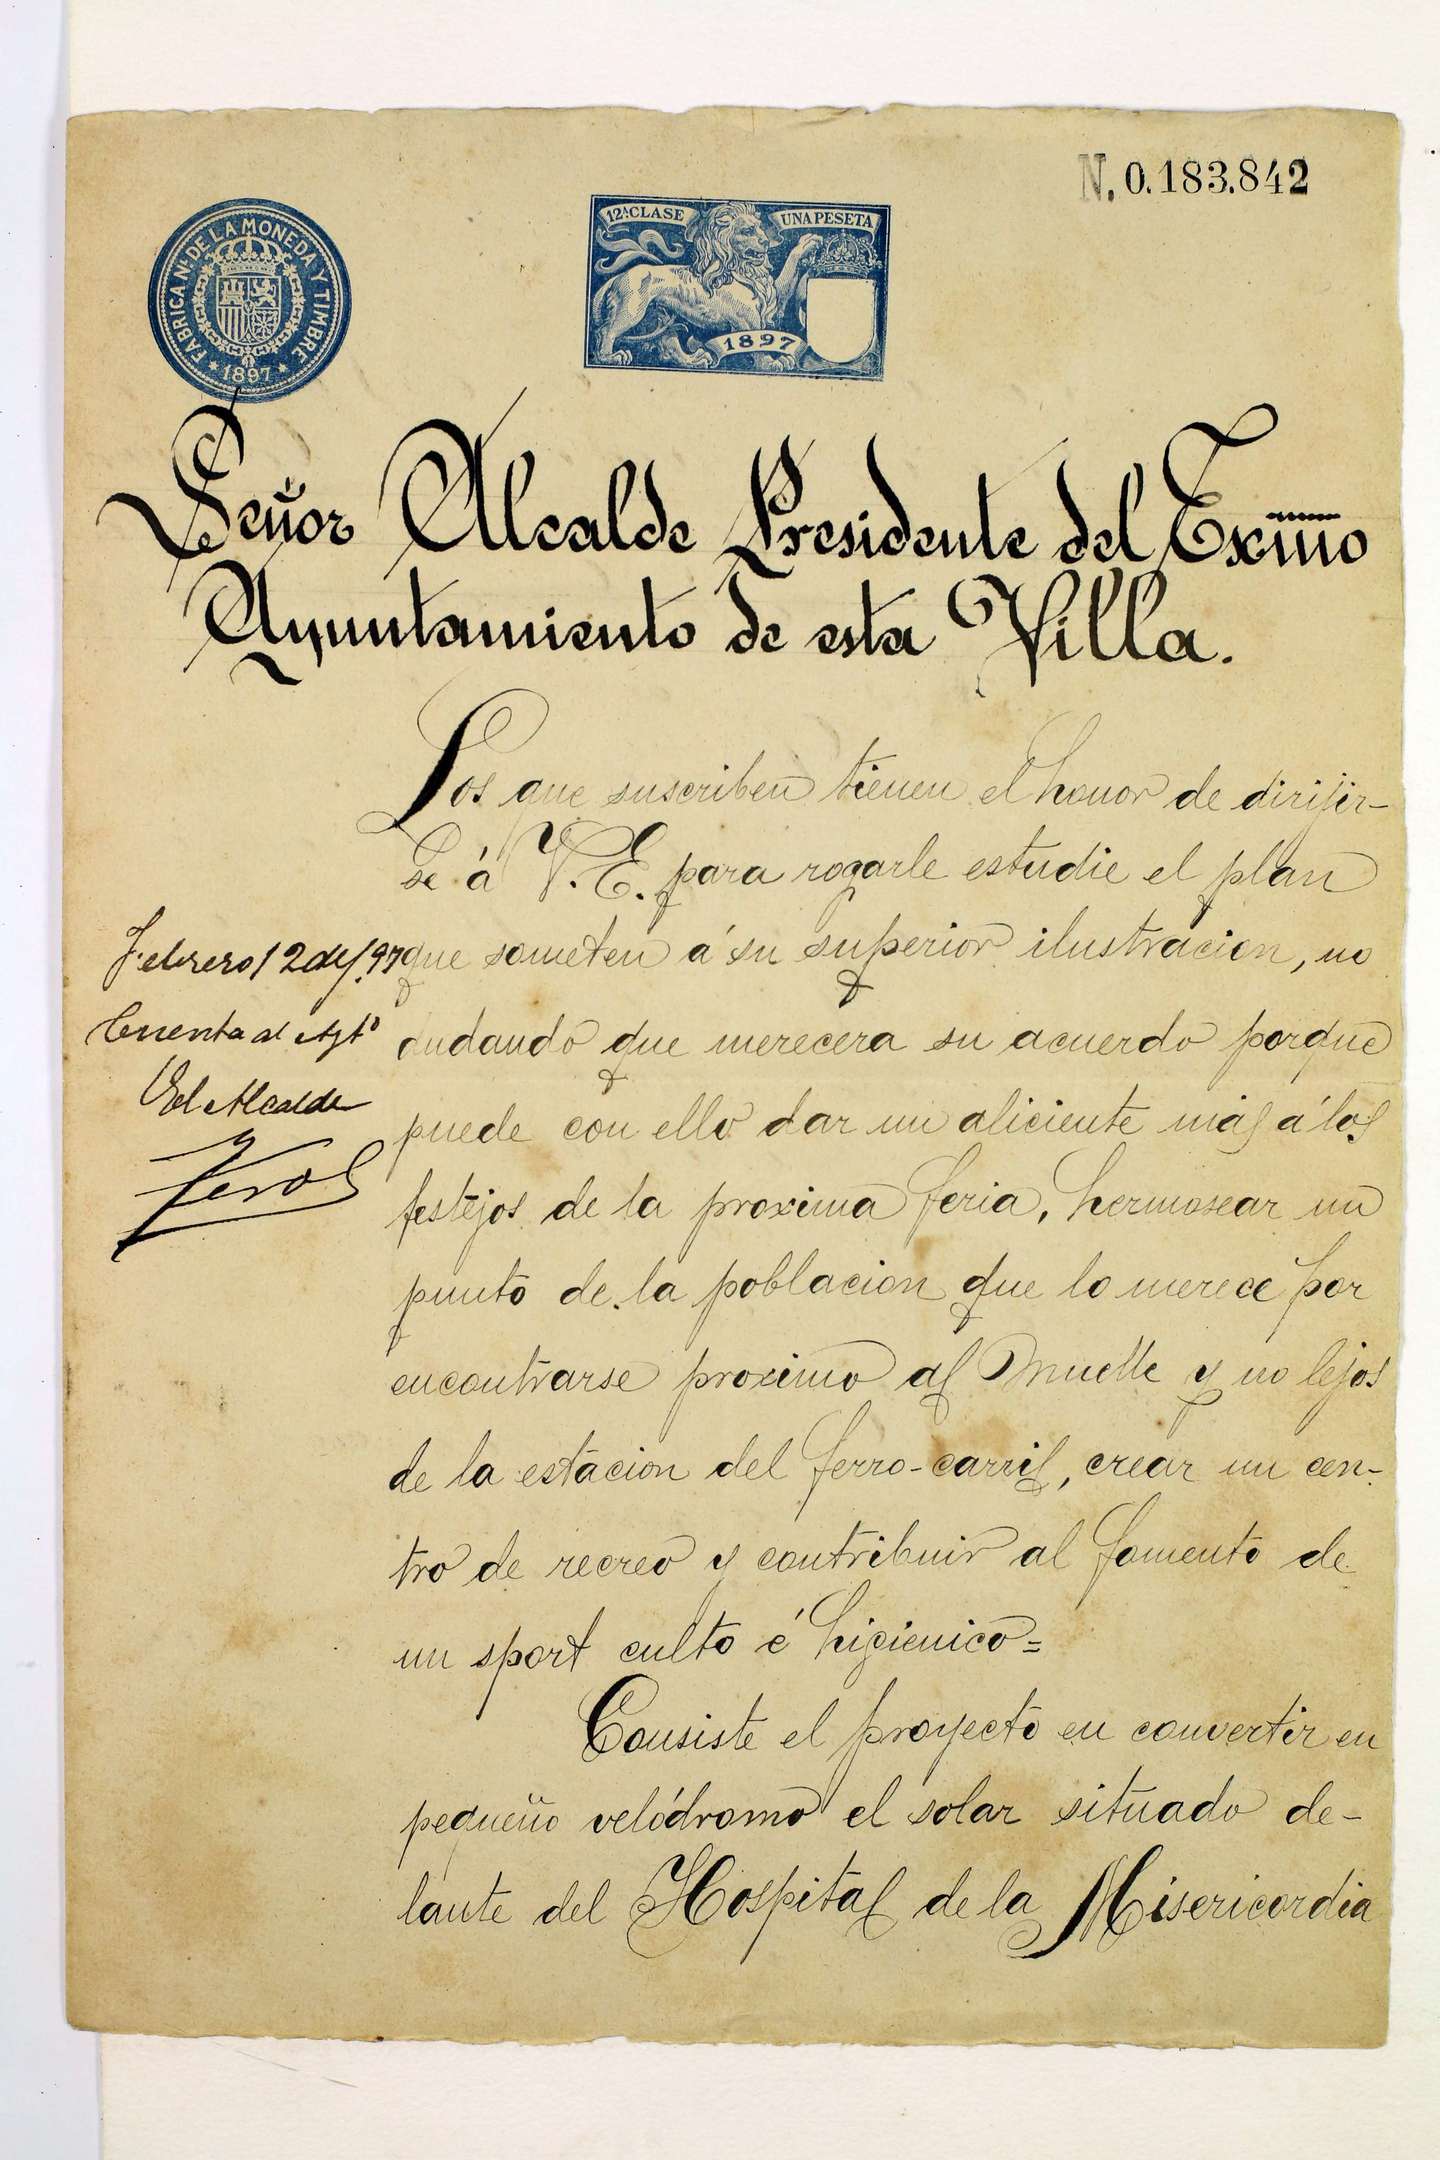 N. 0.183.842
FABRICA Nᴸ DE LA MONEDA Y TIMBRE
* 1897 *
12ᴬ CLASE
UNA PESETA
1897
Señor Alcalde Presidente del Exmo
Ayuntamiento de esta Villa.
Los que suscriben tienen el honor de dirijir-
se á V. E. para rogarle estudie el plan
que someten á su superior ilustracion, no
dudando que merecera su acuerdo porque
puede con ello dar un aliciente más á los
festejos de la proxima feria, hermosear un
punto de la poblacion que lo merece por
encontrarse proximo al Muelle y no lejos
de la estacion del ferro-carril, crear un cen-
tro de recreo y contribuir al fomento de
un sport culto é higienico=
Consiste el proyecto en convertir en
pequeño velódromo el solar situado de-
lante del Hospital de la Misericordia
Febrero 12 de 97
Cuenta al Aytº
El Alcalde